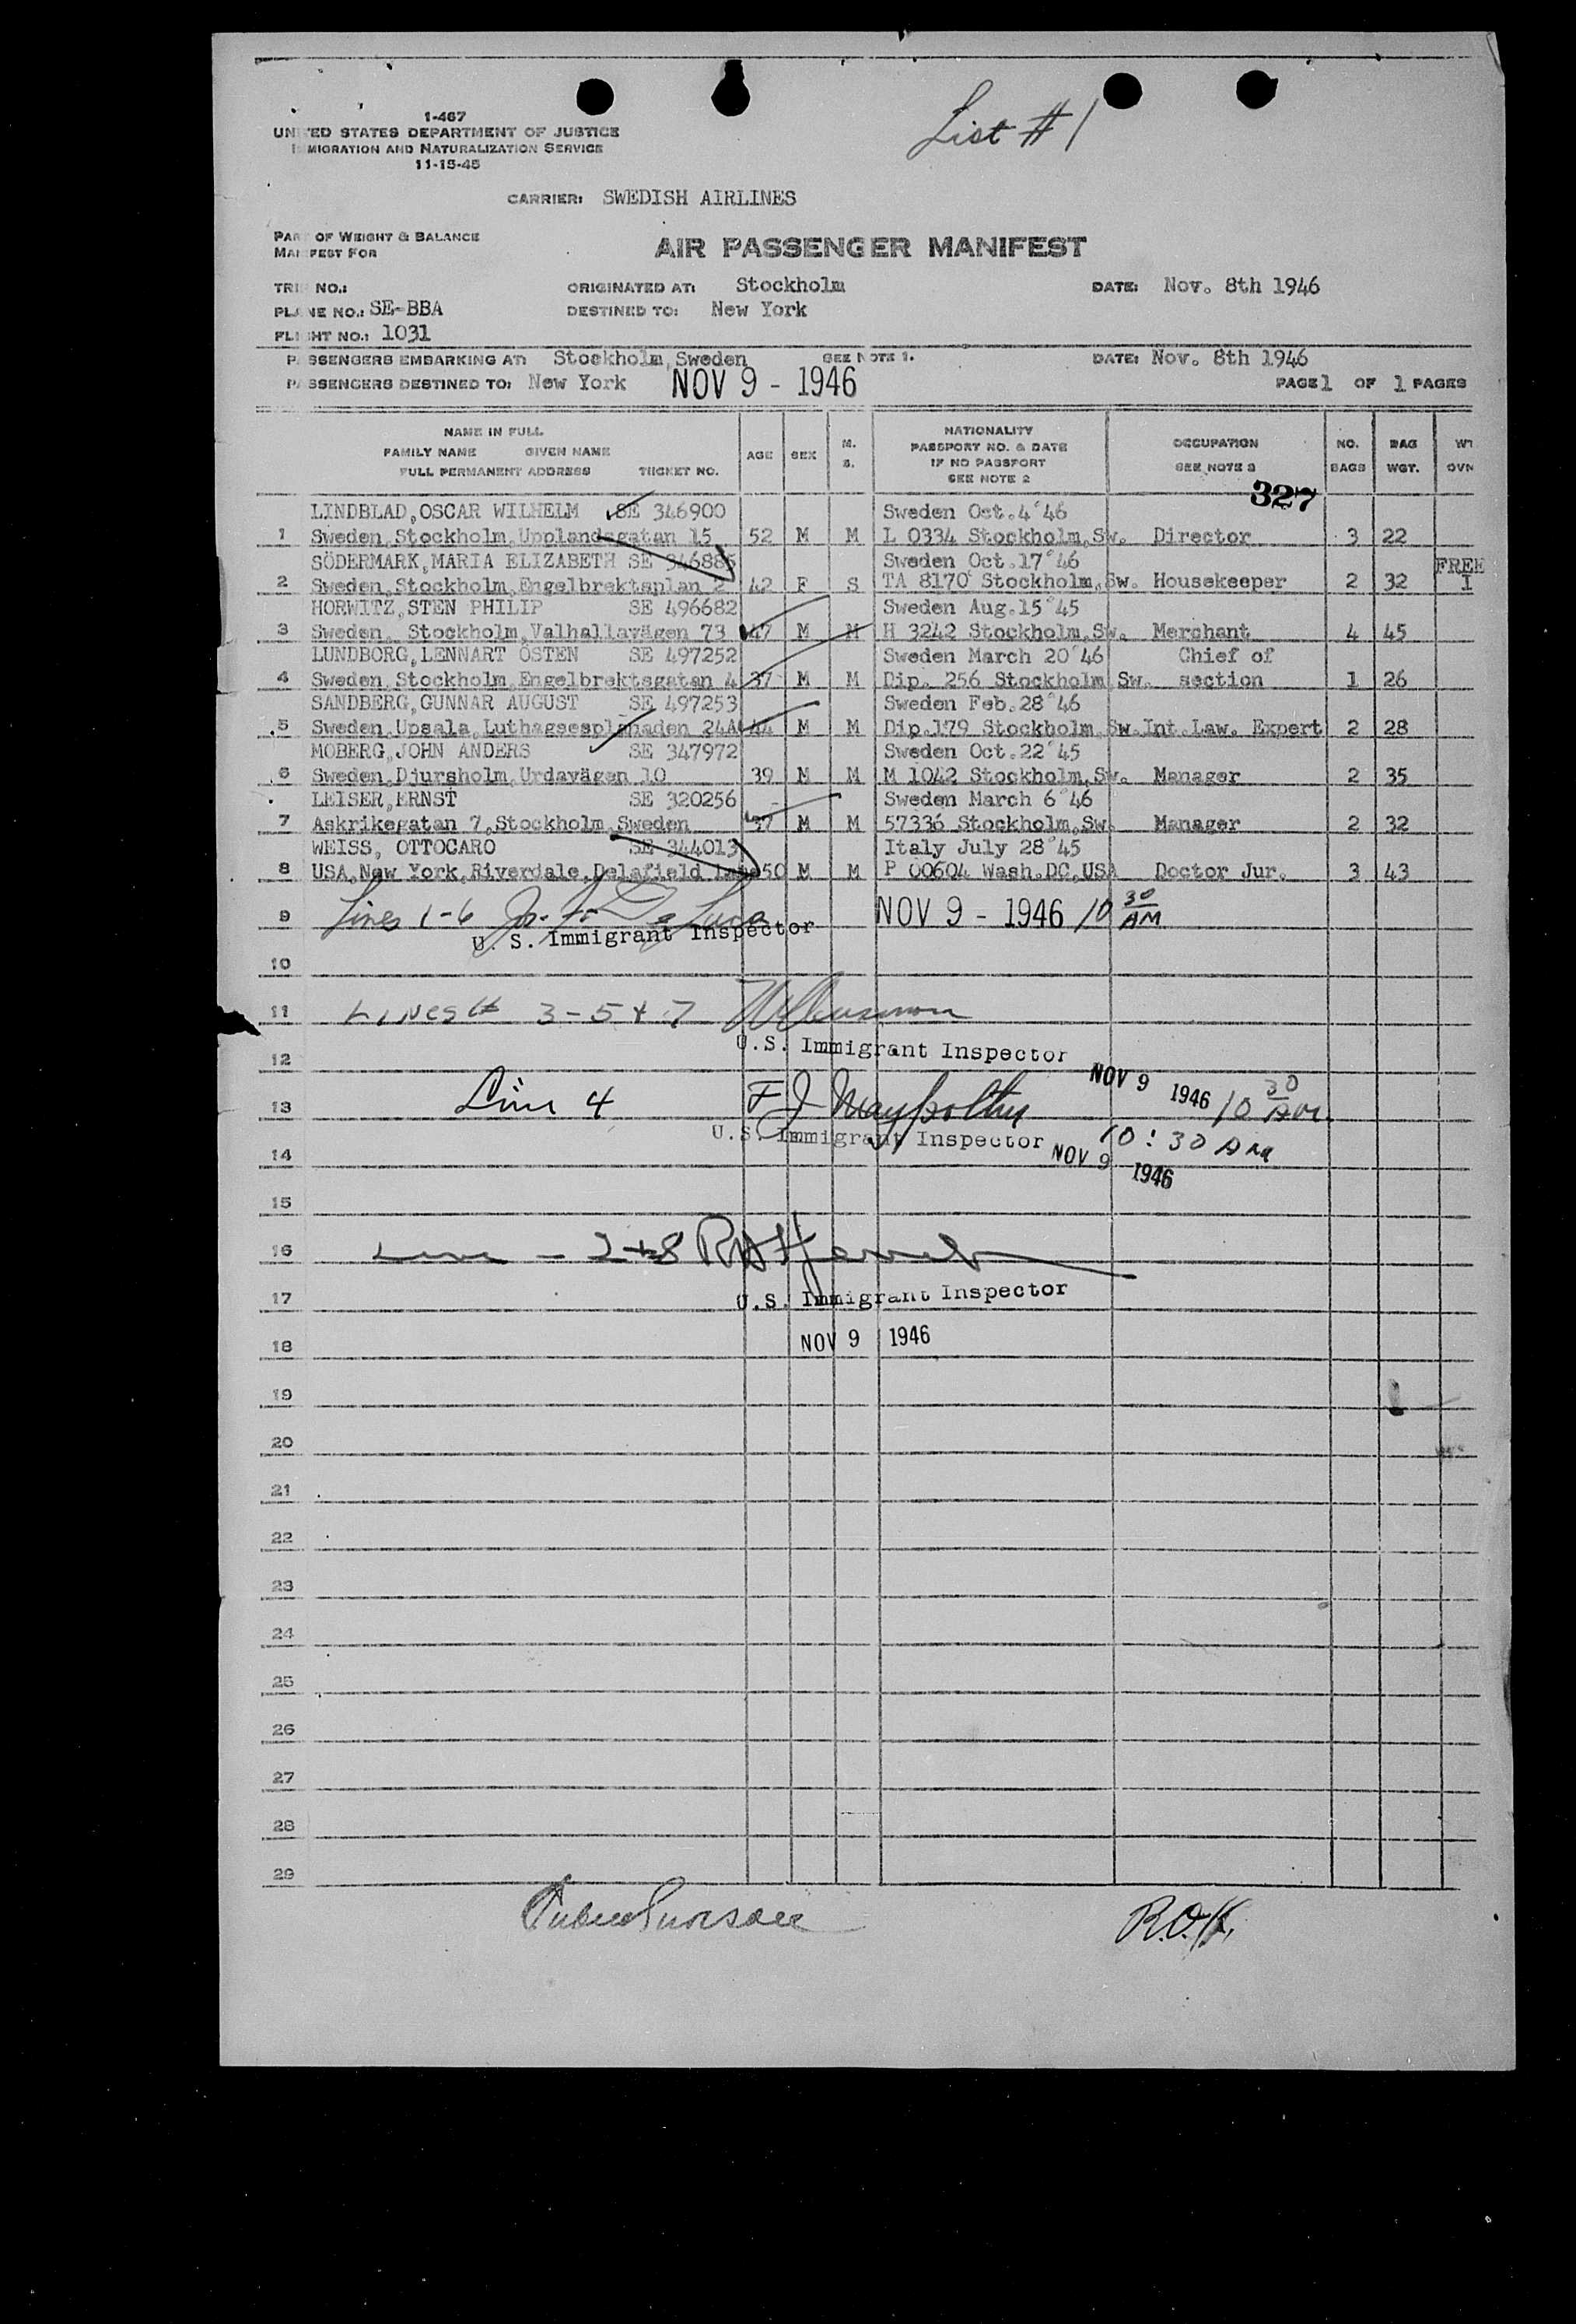 List # 1
1-467
UNITED STATES DEPARTMENT OF JUSTICE
IMMIGRATION AND NATURALIZATION SERVICE
11-15-45
CARRIER: SWEDISH AIRLINES
PART OF WEIGHT & BALANCE
MANIFEST FOR
AIR PASSENGER MANIFEST
TRIP NO.: ORIGINATED AT: Stockholm DATE: Nov. 8th 1946
PLANE NO.: SE-BBA DESTINED TO: New York
FLIGHT NO.: 1031
PASSENGERS EMBARKING AT: Stockholm, Sweden SEE NOTE 1. DATE: Nov. 8th 1946
PASSENGERS DESTINED TO: New York NOV 9 - 1946 PAGE 1 OF 1 PAGES
NAME IN FULL
FAMILY NAME GIVEN NAME
FULL PERMANENT ADDRESS TICKET NO.
AGE SEX M. S.
NATIONALITY
PASSPORT NO. & DATE
IF NO PASSPORT
SEE NOTE 2
OCCUPATION
SEE NOTE 3
NO. BAGS
BAG WGT.
WT OVN
327
LINDBLAD, OSCAR WILHELM SE 346900 Sweden Oct. 4'46
1 Sweden, Stockholm, Upplandsgatan 15 52 M M L 0334 Stockholm, Sw. Director 3 22
SÖDERMARK, MARIA ELIZABETH SE 346885 Sweden Oct. 17'46 FREE
2 Sweden, Stockholm, Engelbrektsplan 2 42 F S TA 8170 Stockholm, Sw. Housekeeper 2 32 I
HORWITZ, STEN PHILIP SE 496682 Sweden Aug. 15'45
3 Sweden, Stockholm, Valhallavägen 73 47 M M H 3242 Stockholm, Sw. Merchant 4 45
LUNDBORG, LENNART ÖSTEN SE 497252 Sweden March 20'46 Chief of
4 Sweden, Stockholm, Engelbrektsgatan 4 37 M M Dip. 256 Stockholm Sw. section 1 26
SANDBERG, GUNNAR AUGUST SE 497253 Sweden Feb. 28'46
5 Sweden, Upsala, Luthagsesplanaden 24A 44 M M Dip. 179 Stockholm Sw. Int. Law. Expert 2 28
MOBERG, JOHN ANDERS SE 347972 Sweden Oct. 22'45
6 Sweden, Djursholm, Urdavägen 10 39 M M M 1042 Stockholm, Sw. Manager 2 35
LEISER, ERNST SE 320256 Sweden March 6'46
7 Askrikegatan 7, Stockholm, Sweden 37 M M 57336 Stockholm, Sw. Manager 2 32
WEISS, OTTOCARO SE 344013 Italy July 28'45
8 USA, New York, Riverdale, Delafield Lane 50 M M P 00604 Wash. DC, USA Doctor Jur. 3 43
9 Lines 1-6 NOV 9 - 1946 10 30 AM
U. S. Immigrant Inspector
10
11 Lines # 3-5 & 7
U.S. Immigrant Inspector
12
NOV 9 1946 10 30 AM
13 Line 4 F J
U.S. Immigrant Inspector 10:30 AM
14 NOV 9 1946
15
16 Line - 2+8
17 U.S. Immigrant Inspector
18 NOV 9 1946
19
20
21
22
23
24
25
26
27
28
29
R.O.K.